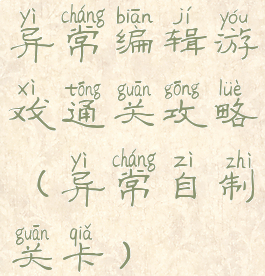 yì cháng biān jí yóu
异常编辑游
xì tōng guān gōng lüè
戏通关攻略
yì cháng zì zhì
（异常自制
guān qiǎ
关卡）